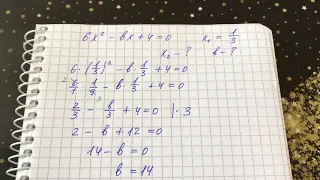 6x² - bx + 4 = 0    x₁ = 1/3
x₂ - ?    b - ?
6 · (1/3)² - b · 1/3 + 4 = 0
6/1 · 1/9 - b · 1/3 + 4 = 0
2/3 - b/3 + 4 = 0 | · 3
2 - b + 12 = 0
14 - b = 0
b = 14